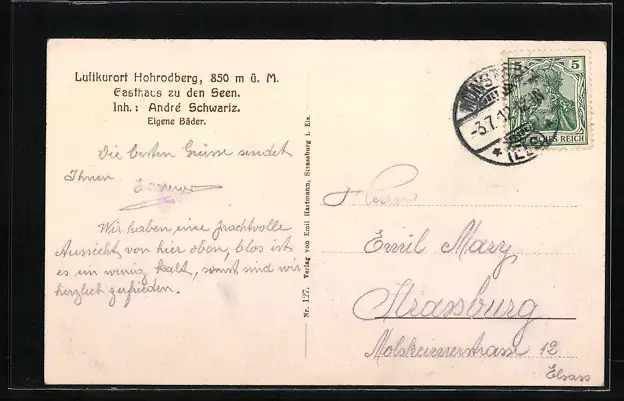 Luftkurort Hohrodberg, 850 m ü. M.
Gasthaus zu den Seen.
Inh.: André Schwartz.
Eigene Bäder.
Die besten Grüsse sendet
Ihnen
Wir haben eine prachtvolle
Aussicht von hier oben, blos ist
es ein wenig kalt, sonst sind wir
herzlich zufrieden.
Nr. 127. Verlag von Emil Hartmann, Strassburg i. Els.
5
DEUTSCHES REICH
MÜNSTER
-3.7.12
(ELS)
Herrn
Emil Mary
Strassburg
Molsheimerstrasse 12
Elsass